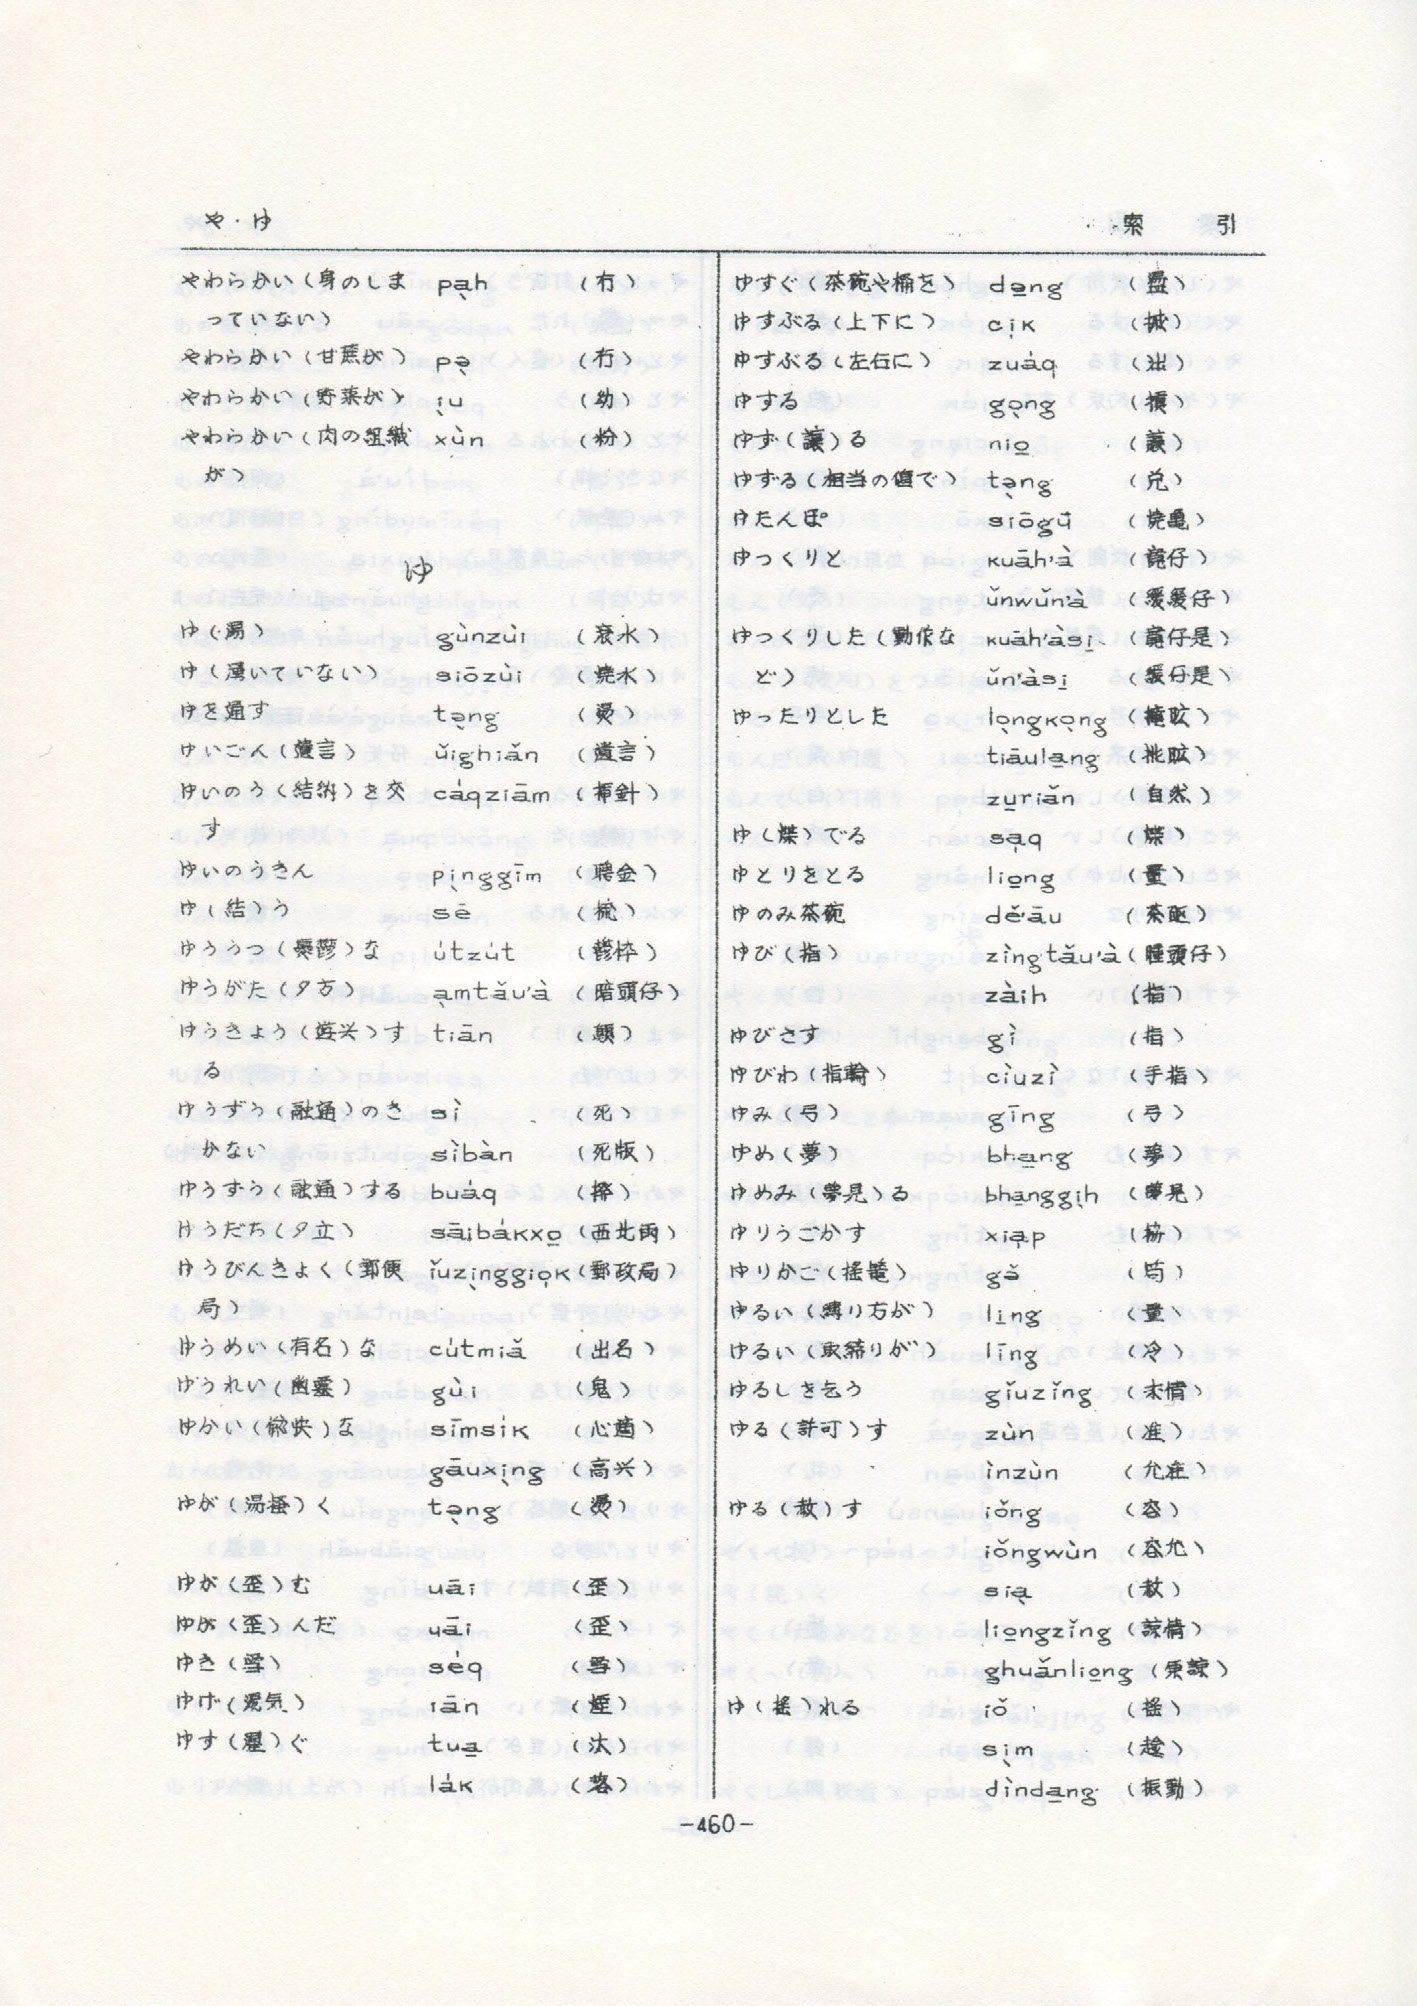 や・ゆ
索 引
やわらかい(身のしま pa̱h (冇)
っていない)
やわらかい(甘蔗が) pə̱ (冇)
やわらかい(野菜が) i̱u (幼)
やわらかい(肉の組織 xùn (粉)
が)
ゆ
ゆ(湯) gùnzùi (滾水)
ゆ(湧いていない) siōzùi (焼水)
ゆを通す tə̱ng (燙)
ゆいごん(遺言) ŭighiăn (遺言)
ゆいのう(結納)を交 cáqziām (挿針)
す
ゆいのうきん pi̱nggīm (聘金)
ゆ(結)う sē (梳)
ゆううつ(憂鬱)な útzút (鬱悴)
ゆうがた(夕方) a̱mtău'à (暗頭仔)
ゆうきょう(遊兴)す tiān
る
ゆうずう(融通)のき sì (死)
かない sìbàn (死版)
ゆうずう(融通)する buáq (撥)
ゆうだち(夕立) sāibákxo̱ (西北雨)
ゆうびんきょく(郵便 ĭuzi̱nggio̱k (郵政局)
局)
ゆうめい(有名)な cútmiă (出名)
ゆうれい(幽霊) gùi (鬼)
ゆかい(愉快)な sīmsík (心適)
gāuxi̱ng (高兴)
ゆが(湯搔)く tə̱ng (燙)
ゆが(歪)む uāi (歪)
ゆが(歪)んだ uāi (歪)
ゆき(雪) séq (雪)
ゆげ(湯気) iān (煙)
ゆす(濯)ぐ tua̱ (汰)
lák (落)
ゆすぐ(茶碗や桶を) də̱ng (盪)
ゆすぶる(上下に) ci̱k
ゆすぶる(左右に) zuáq
ゆする go̱ng
ゆず(讓)る nio̱ (讓)
ゆずる(相当の値で) tə̱ng (兌)
ゆたんぽ siōgū (焼亀)
ゆっくりと kuāh'à (寬仔)
ŭnwŭn'à (緩緩仔)
ゆっくりした(動作な kuāh'àsi̱ (寬仔是)
ど) ŭn'àsi̱ (緩仔是)
ゆったりとした lo̱ngko̱ng
tiāula̱ng
zu̱riăn (自然)
ゆ(煠)でる sa̱q (煠)
ゆとりをとる lio̱ng (量)
ゆのみ茶碗 dĕ'āu (茶甌)
ゆび(指) zìngtău'à
zàih (指)
ゆびさす gì (指)
ゆびわ(指輪) cìuzì (手指)
ゆみ(弓) gīng (弓)
ゆめ(夢) bha̱ng (夢)
ゆめみ(夢見)る bha̱nggi̱h (夢見)
ゆりうごかす xia̱p
ゆりかご(揺籠) gŏ
ゆるい(縛り方が) li̱ng (量)
ゆるい(取締りが) līng (冷)
ゆるしを乞う gĭuzĭng (求情)
ゆる(許可)す zùn (准)
ìnzùn (允准)
ゆる(赦)す iŏng (容)
iŏngwùn (容允)
sia̱ (赦)
lio̱ngzĭng (諒情)
ghuănlio̱ng (原諒)
ゆ(揺)れる iŏ (揺)
si̱m
dìnda̱ng (振動)
-460-